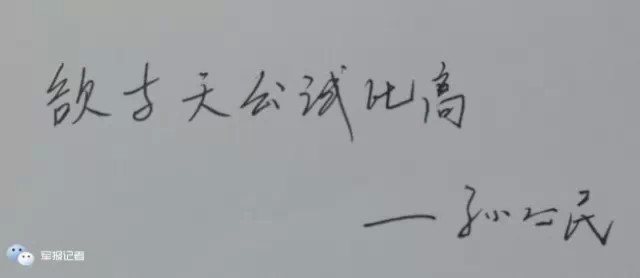 欲与天公试比高
—孙 民
军报记者